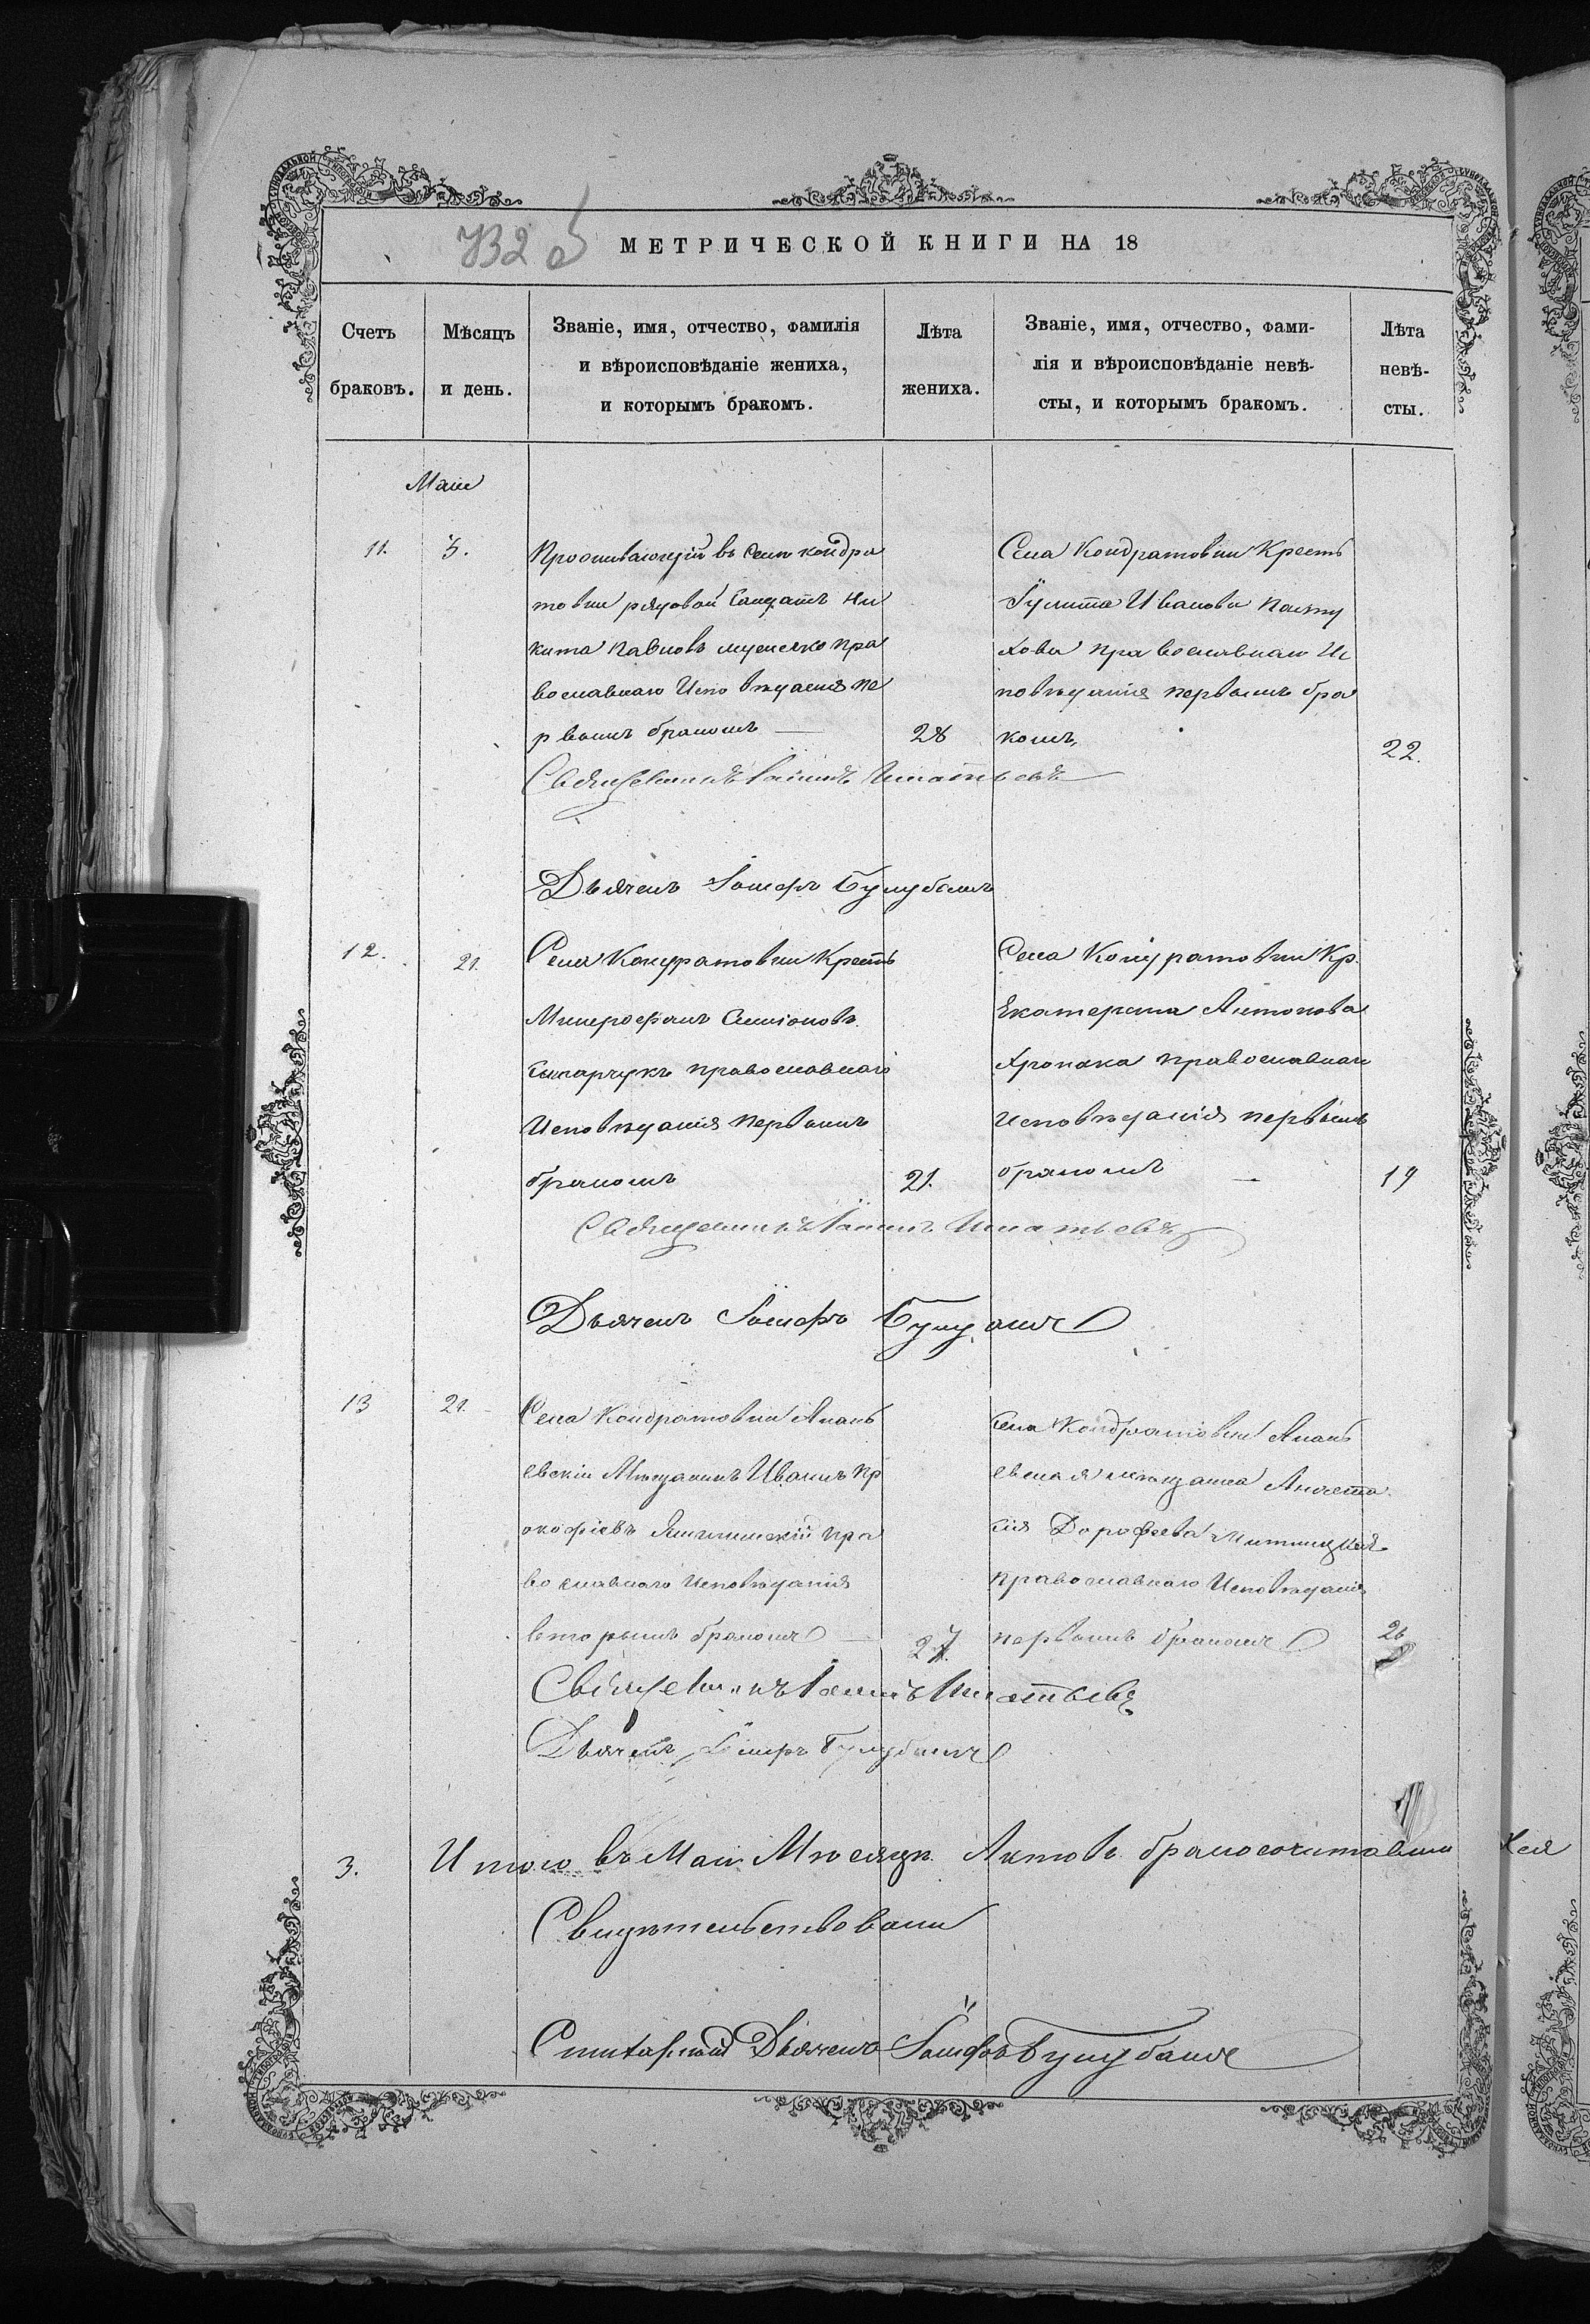 МЕТРИЧЕСКОЙ КНИГИ НА 18
Счетъ браковъ.
Мѣсяцъ и день.
Званіе, имя, отчество, фамилія
и вѣроисповѣданіе жениха,
и которымъ бракомъ.
Лѣта жениха.
Званіе, имя, отчество, фами-
лія и вѣроисповѣданіе невѣ-
сты, и которымъ бракомъ.
Лѣта невѣ-
сты.
Маи
11. 5.
Проживающій въ Селѣ Кондра
товки рядовой Салдатъ Ни
кита Павловъ пра
вославнаго Исповѣданія пе
рвымъ бракомъ 28
Села Кондратовки Крест
Іулитта Иванова
православнаго Ис
повѣданія первымъ бра
комъ, 22.
Священникъ Іоаннъ Игнатьевъ
Дьячекъ Іосифъ
12. 21.
Села Кондратовки Крестъ
Митрофанъ Симіоновъ
православнаго
Исповѣданія первымъ
бракомъ 21.
Села Кондратовки Кр.
Екатерина Антонова
православнаго
исповѣданія первымъ
бракомъ 19
Священникъ Іоаннъ Игнатьевъ
Дьячекъ Іосифъ
13 21.
Села Кондратовки Анань
евскій Мѣщанинъ Иванъ Пр
окофіевъ пра
вославнаго Исповѣданія
вторымъ бракомъ 27
Села Кондратовки Анань
евская мѣщанка Анаста
сія Дорофеева
православнаго Исповѣданія
первымъ бракомъ 26
Священникъ Іоаннъ Игнатьевъ
Дьячекъ Іосифъ
3. Итого въ Маи Мѣсяцѣ Актовъ бракосочитавши хся
Свидѣтельствовали
Дьячекъ Іосифъ